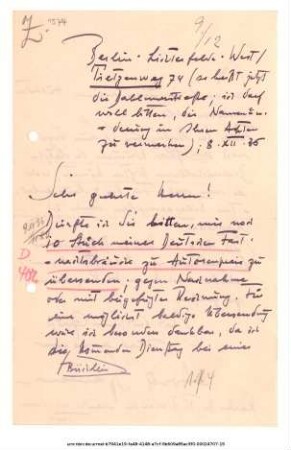 9/12
Berlin-Lichterfelde-West/
Tietzenweg 74 (so heißt jetzt
die Dahlemerstraße. ich darf
wohl bitten, die Namensän-
derung in Ihren Akten
zu vermerken); 8. XII. 35
Sehr geehrte Herren!
Dürfte ich Sie bitten, mir noch
10 Stück meiner Deutschen Fest-
zu Autorenpreis zu
übersenden; gegen Nachnahme
oder mit beigefügter Rechnung. Für
eine möglichst baldige Übersendung
wäre ich besonders dankbar, da ich
die kommenden Dienstag bei einer
D
482